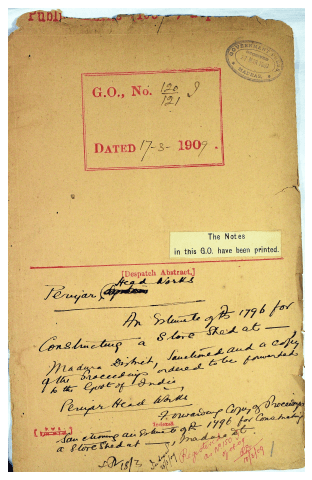 G.O., No. 120 I
121
DATED 17-3- 1909.
GOVERNMENT
MADRAS
The Notes
in this G.O. have been printed.
[Despatch Abstract.]
Periyar Head Works
An Estimate of Rs 1796 for
Constructing a Store Shed at —
Madura District, sanctioned and a copy
of the Proceedings ordered to be forwarded
to the Govt of India
Periyar Head Works
Forwarding Copy of Proceedings
Sanctioning an Estimate of Rs 1796 for Constructing
a Store Shed at —, Madura Dt.